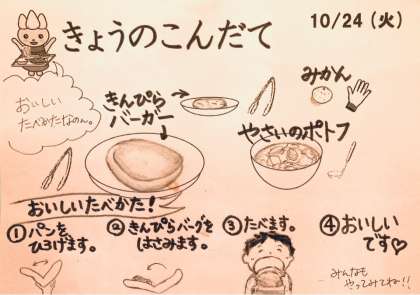 きょうのこんだて
10/24（火）
おいしい
たべかたなのん。
きんぴら
バーガー
みかん
やさいのポトフ
おいしいたべかた！
①パンを
ひろげます。
②きんぴらバーグを
はさみます。
③たべます。
④おいしい
です♡
みんなも
やってみてね!!